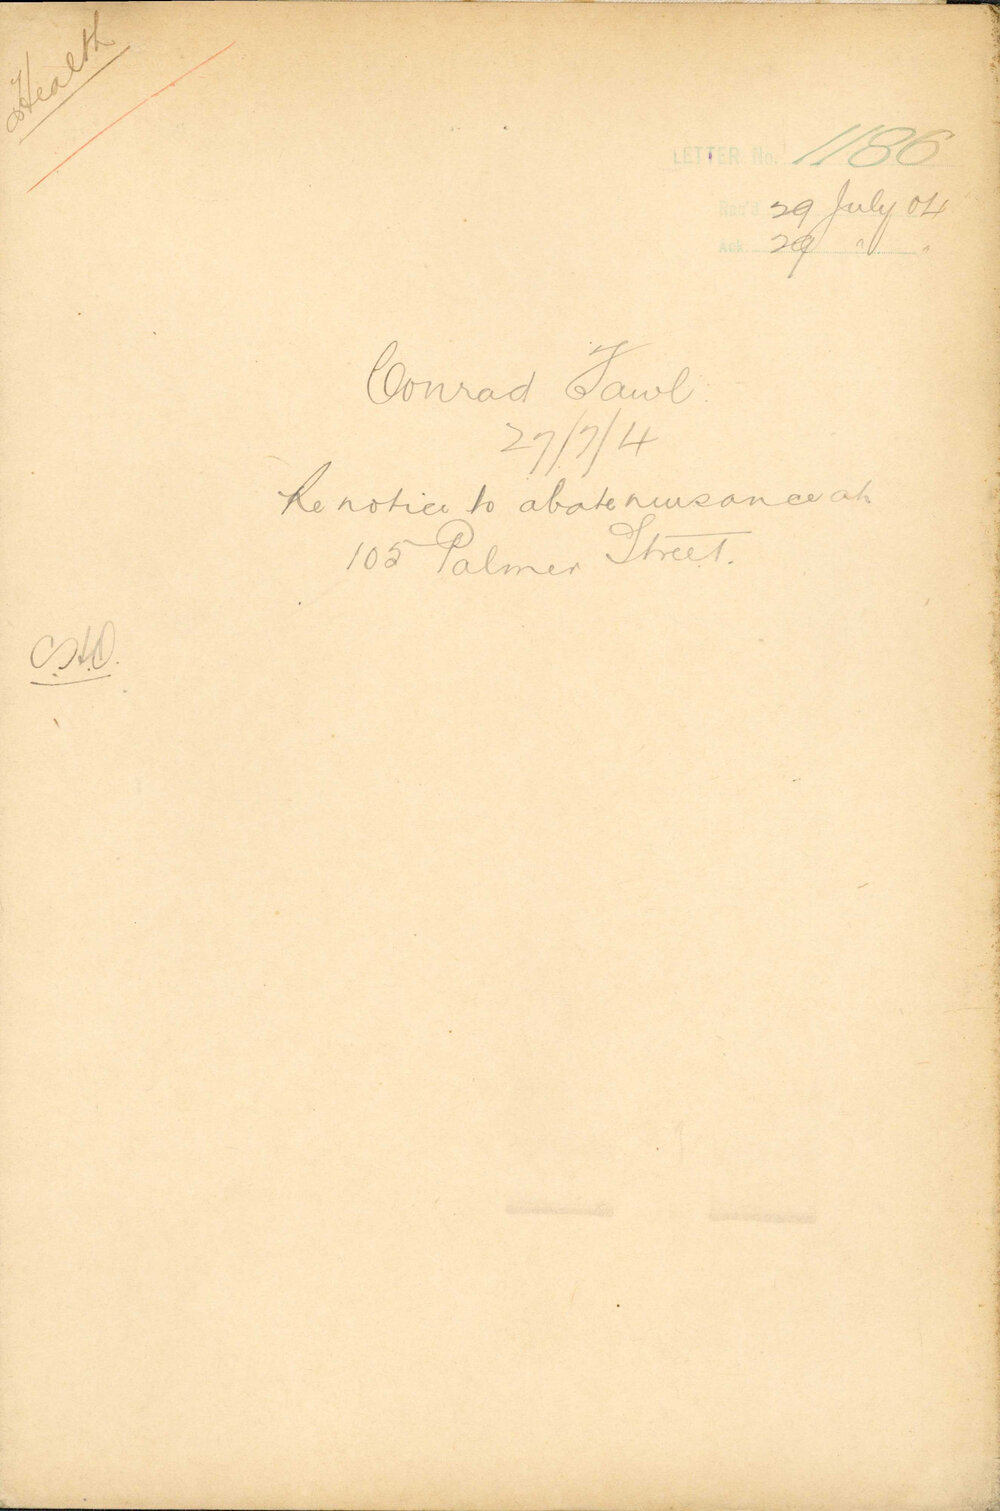 Health
LETTER No. 1186
Rec'd 29 July 04
Ack. 29 " "
Conrad Fawl
27/7/4
Re notice to abate nuisance at
105 Palmer Street.
C.H.O.